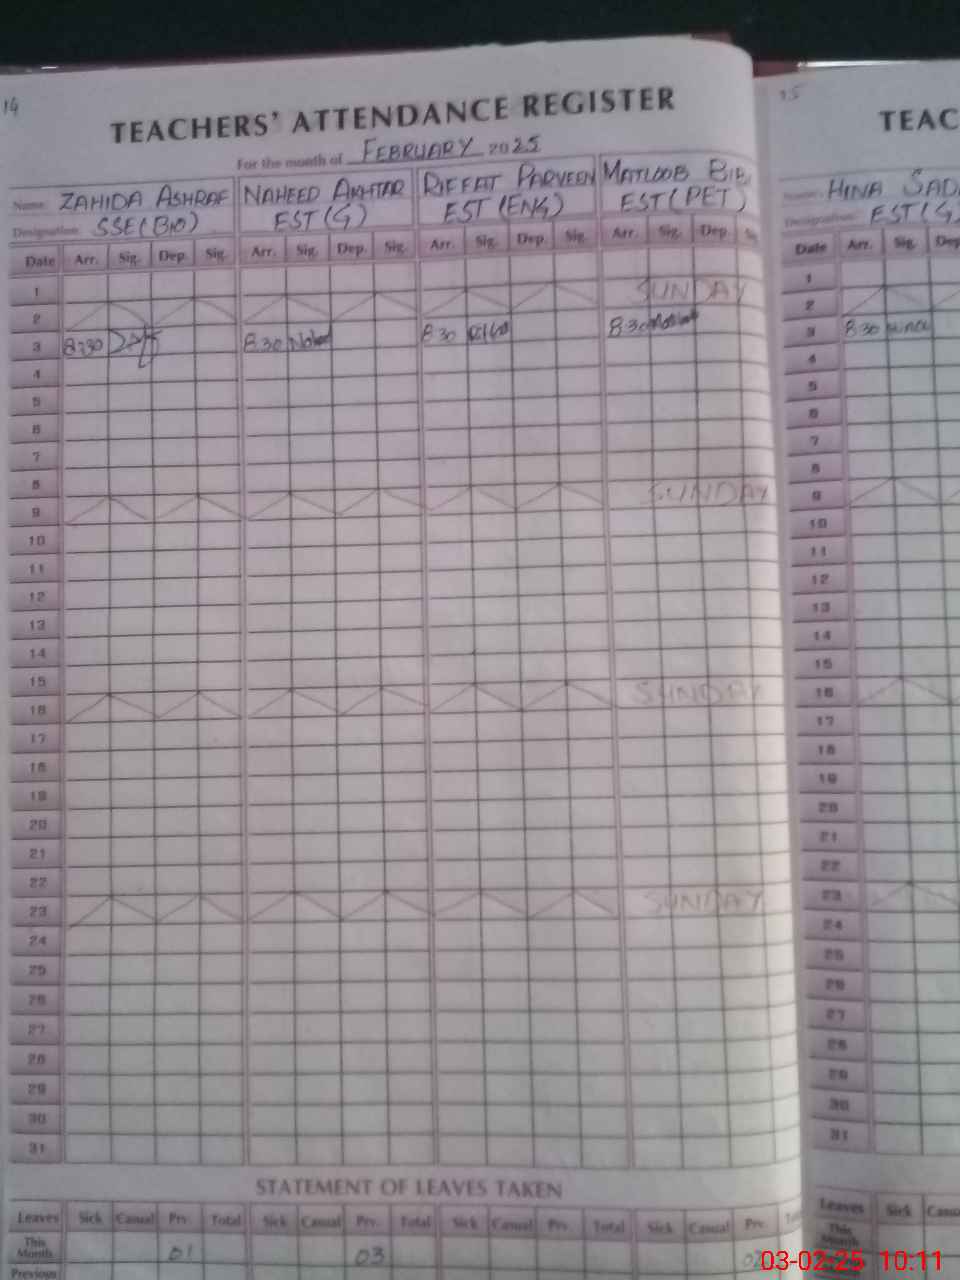 14
TEACHERS' ATTENDANCE REGISTER
For the month of FEBRUARY 2025
Name ZAHIDA ASHRAF NAHEED AKHTAR RIFFAT PARVEEN MATLOOB BIBI
Designation SSE(BIO) EST(G) EST(ENG) EST(PET)
Date Arr. Sig. Dep. Sig. Arr. Sig. Dep. Sig. Arr. Sig. Dep. Sig. Arr. Sig. Dep.
1
2 SUNDAY
3 8:30 8.30 8 30 8.30
4
5
6
7
8
9 SUNDAY
10
11
12
13
14
15
16 SUNDAY
17
18
19
20
21
22
23 SUNDAY
24
25
26
27
28
29
30
31
STATEMENT OF LEAVES TAKEN
Leaves Sick Casual Prv. Total Sick Casual Prv. Total Sick Casual Prv. Total Sick Casual Prv.
This Month 01 03
Previous
15
TEAC
HINA SAD
Designation EST(G)
Date Arr. Sig. Dep
1
2
3 8 30
4
5
6
7
8
9
10
11
12
13
14
15
16
17
18
19
20
21
22
23
24
25
26
27
28
29
30
31
Leaves Sick Casu
This Month
03-02-25 10:11